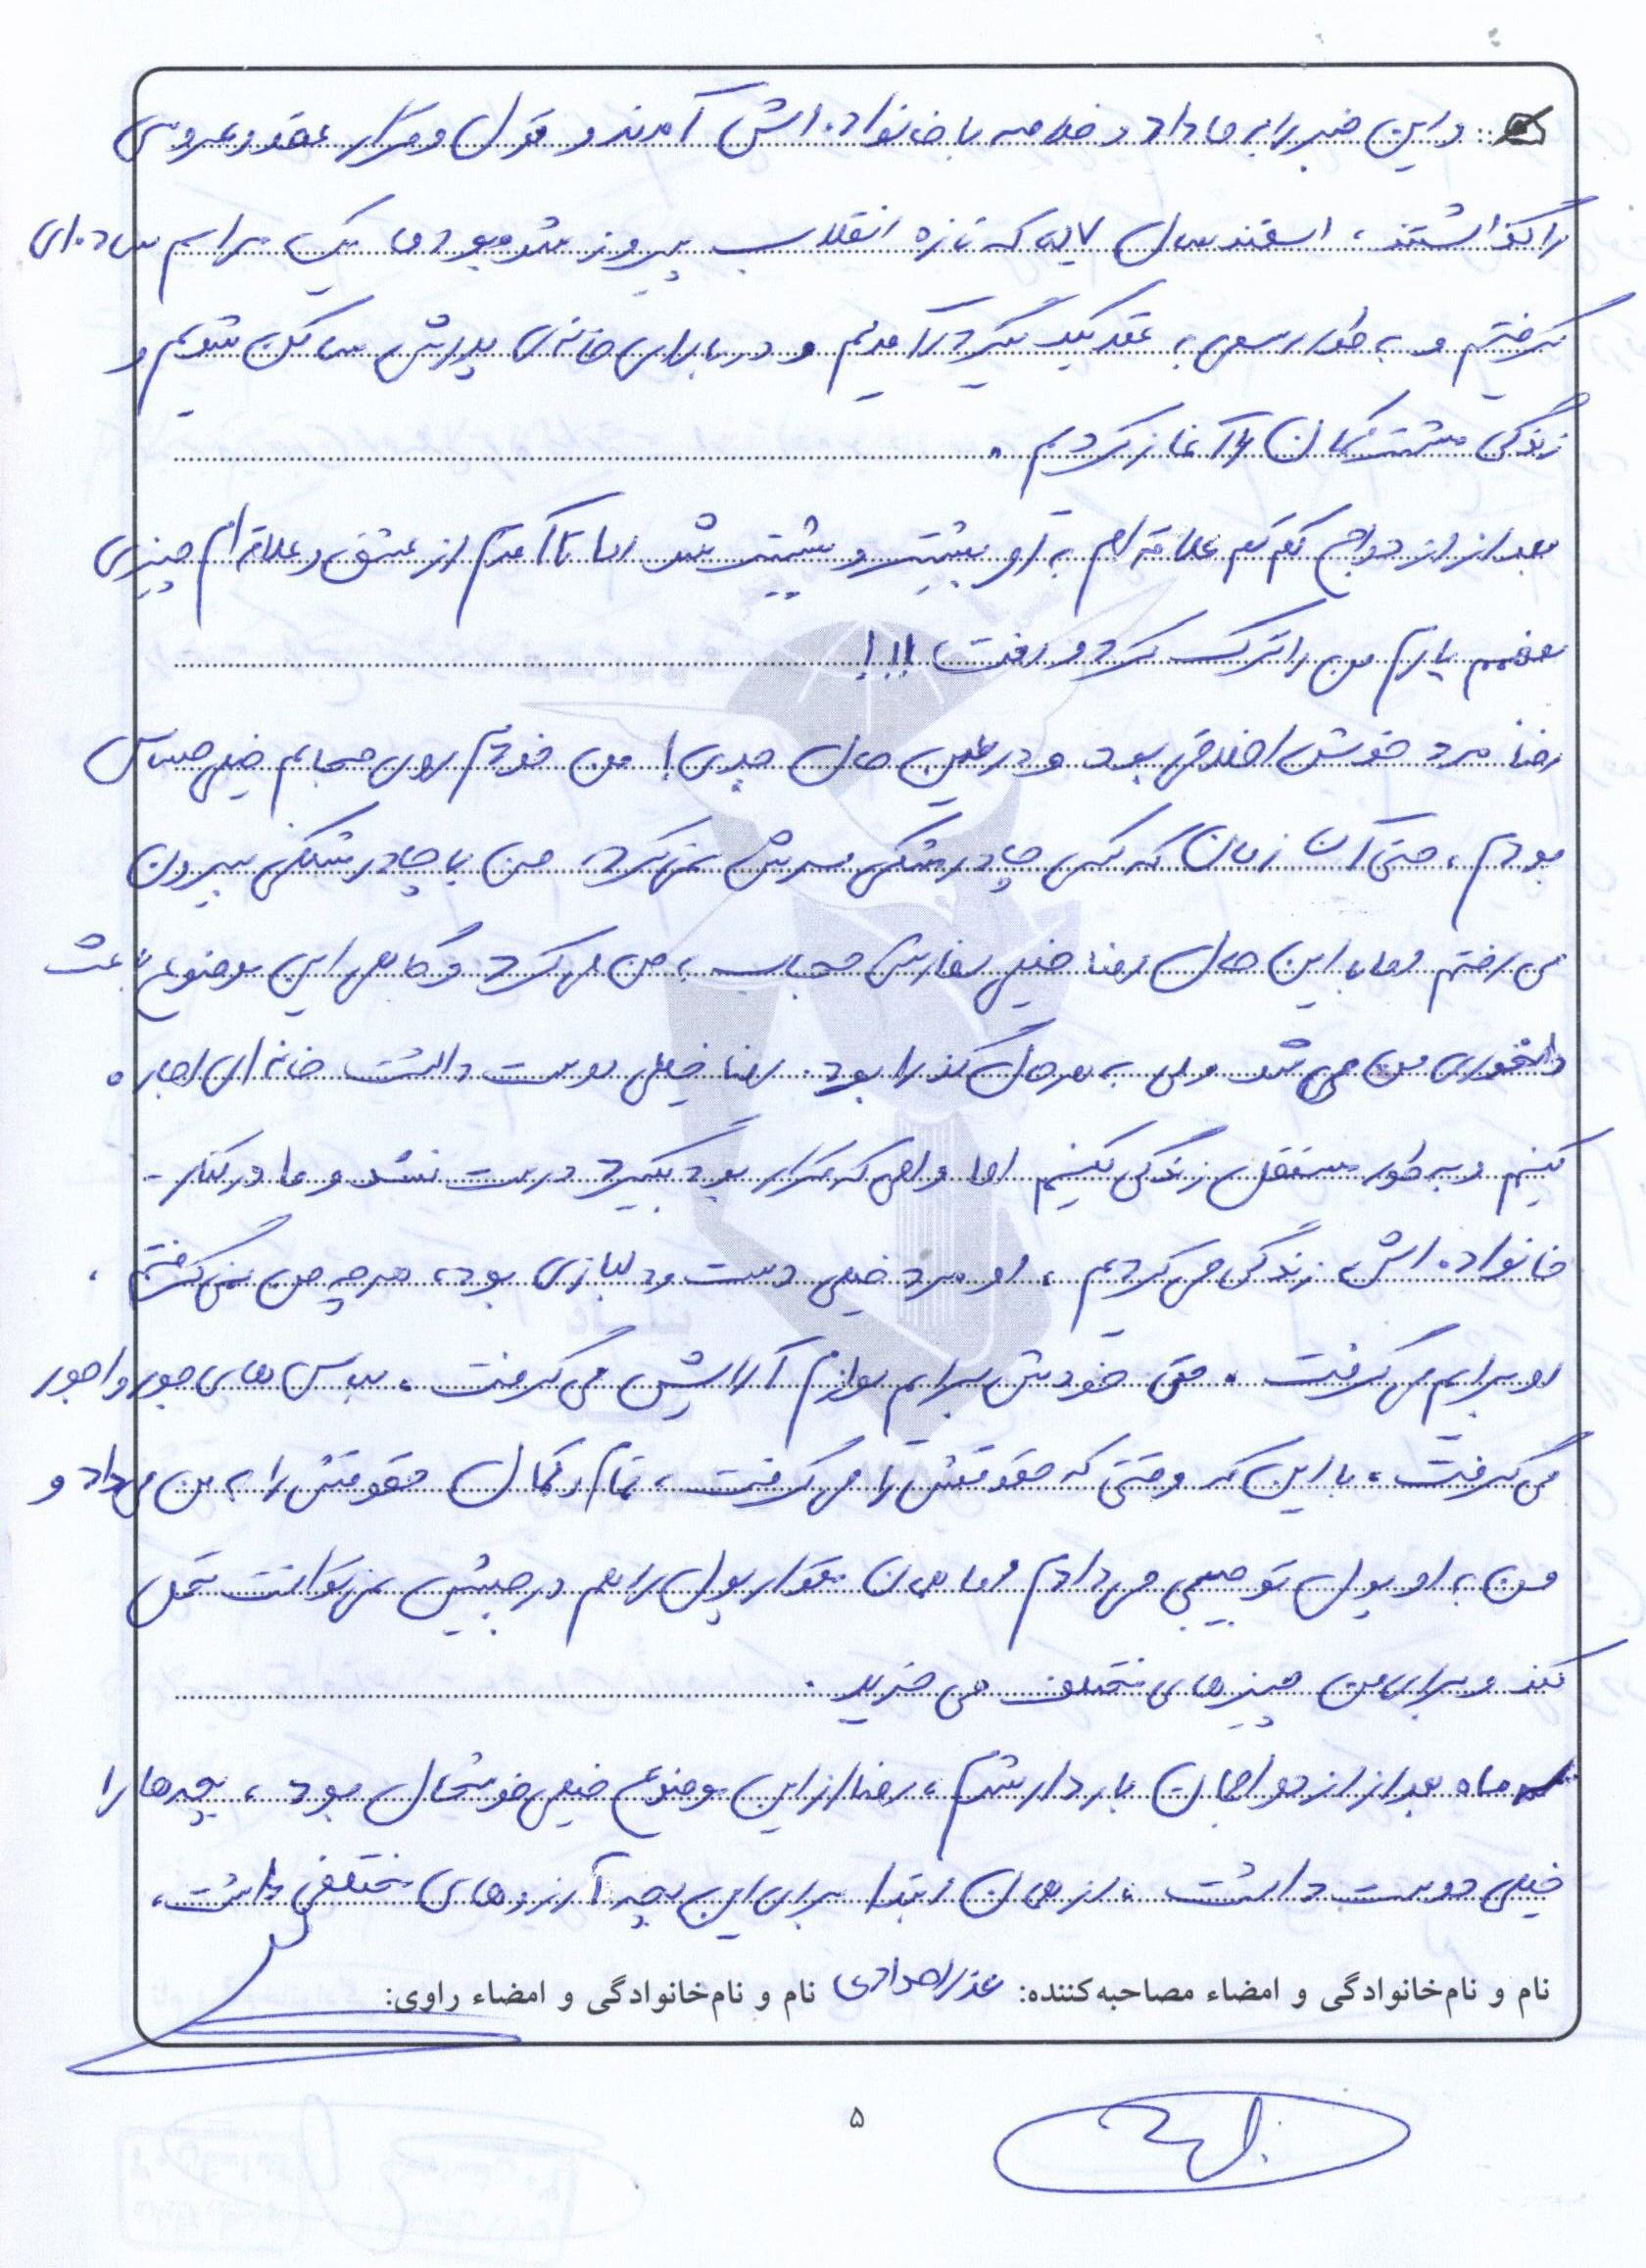 و این خبر را به ما داد و خلاصه با خانواده اش آمدند و قول و قرار عقد و عروسی
را گذاشتند، اسفند سال ۵۷ که تازه انقلاب پیروز شده بود ما یک مراسم ساده ای
گرفتیم و به طور رسمی به عقد یکدیگر در آمدیم و در بالای خانه ی پدرش ساکن شدیم و
زندگی مشترکمان را آغاز کردیم.
بعد از ازدواج کم کم علاقه ام به او بیشتر و بیشتر شد اما تا آمدم از عشق و علاقه ام چیزی
بفهمم یارم من را ترک کرد و رفت!!!
رضا مرد خوش اخلاقی بود و در عین حال جدی! من خودم روی حجابم خیلی حساس
بودم، حتی آن زمان که کسی چادر مشکی سرش نمی کرد من با چادر مشکی بیرون
می رفتم اما با این حال رضا خیلی سفارش حجاب به من می کرد و گاهی این موضوع باعث
دلخوری من می شد ولی به هر حال گذرا بود. رضا خیلی دوست داشت خانه ای اجاره
کنیم و به طور مستقل زندگی کنیم اما وامی که قرار بود بگیرد درست نشد و ما در کنار
خانواده اش زندگی می کردیم، او مرد خیلی دست و دلبازی بود، هرچه من نمی گرفتم،
او برایم می گرفت. حتی خودش برایم لوازم آرایش می گرفت، لباس های جور واجور
می گرفت، با این که وقتی که حقوقش را می گرفت، تمام و کمال حقوقش را به من می داد و
من به او پول تو جیبی می دادم اما همان مقدار پول را هم در جیبش نمی توانست تحمل
کند و برای من چیزهای مختلف می خرید.
ماه بعد از ازدواجمان باردار شدم، رضا از این موضوع خیلی خوشحال بود، بچه ها را
خیلی دوست داشت، از همان ابتدا برای این بچه آرزوهای مختلفی داشت،
نام و نام‌خانوادگی و امضاء مصاحبه‌کننده: عذرا مرادی نام و نام‌خانوادگی و امضاء راوی:
۵